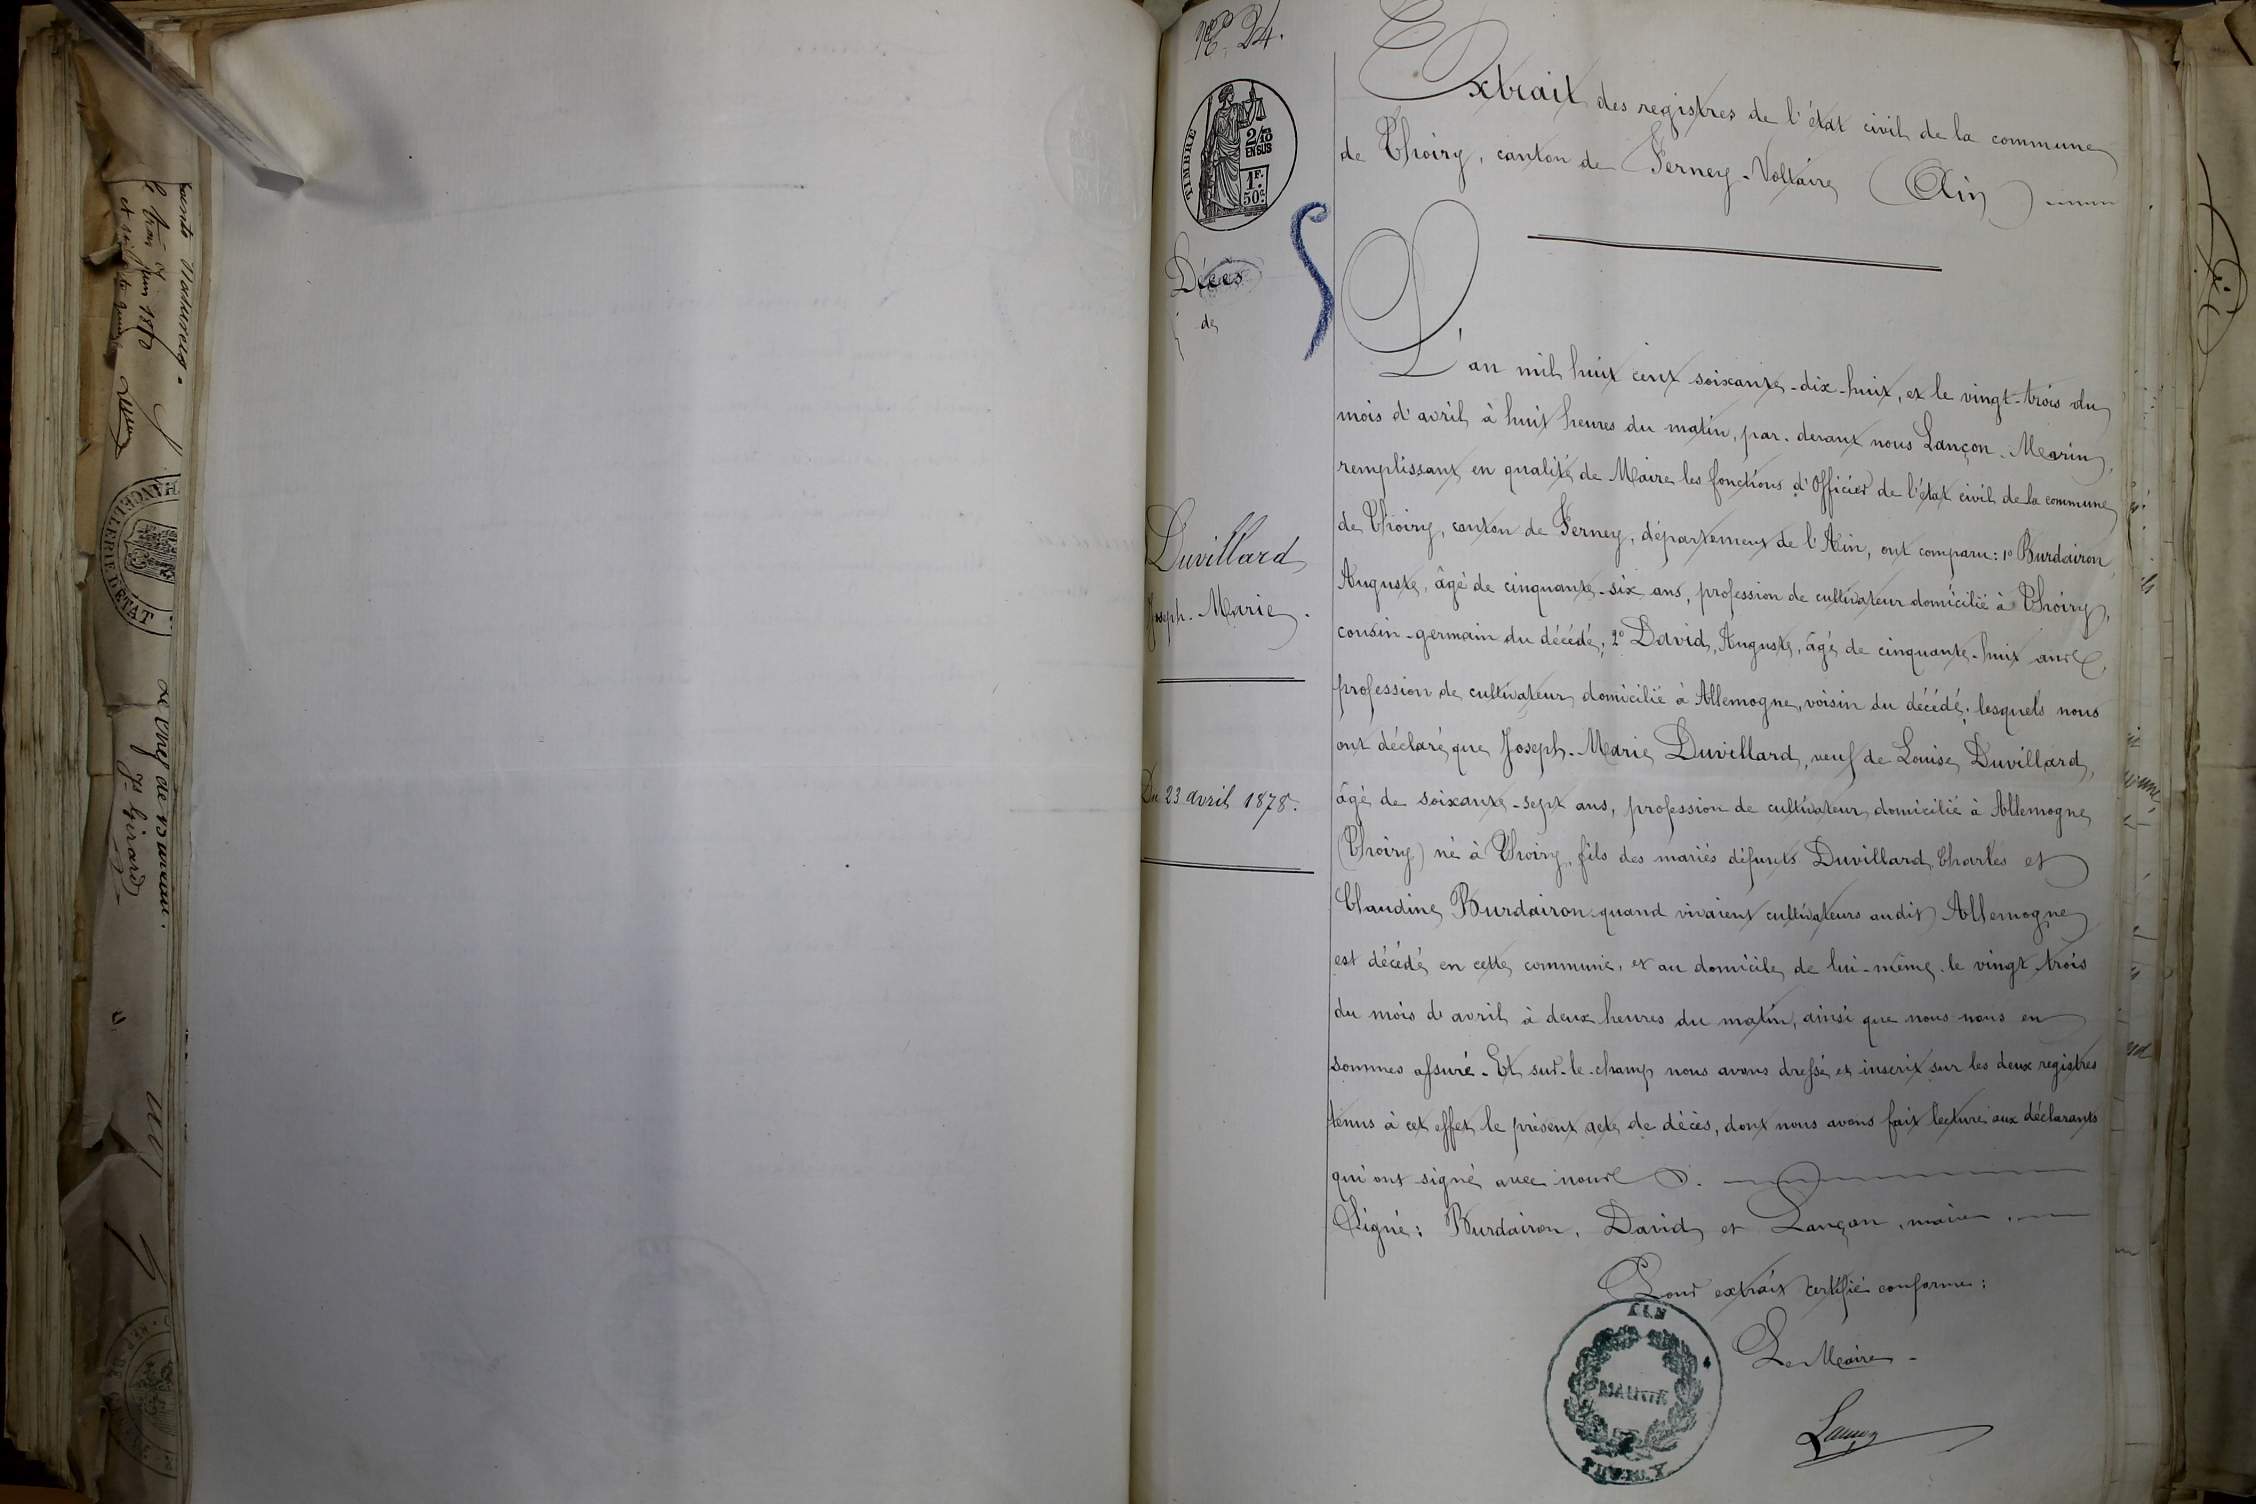 le trois juin 1870
CHANCELLERIE D'ÉTAT
Js Girard
No 24.
TIMBRE
2/10
EN SUS
1F.
50c.
Décès
de
Duvillard
Joseph-Marie.
Du 23 avril 1878.
Extrait des registres de l'état civil de la commune
de Thoiry, canton de Ferney-Voltaire (Ain)
L'an mil huit cent soixante-dix-huit, et le vingt-trois du
mois d'avril, à huit heures du matin, par-devant nous Lançon Marin,
remplissant en qualité de Maire les fonctions d'Officier de l'état civil de la commune
de Thoiry, canton de Ferney, département de l'Ain, ont comparu: 1o Burdairon
Auguste, âgé de cinquante-six ans, profession de cultivateur domicilié à Thoiry,
cousin-germain du décédé; 2o David, Auguste, âgé de cinquante-huit ans,
profession de cultivateur domicilié à Allemogne, voisin du décédé; lesquels nous
ont déclaré que Joseph-Marie Duvillard, veuf de Louise Duvillard,
âgé de soixante-sept ans, profession de cultivateur domicilié à Allemogne
(Thoiry) né à Thoiry, fils des mariés défunts Duvillard Charles et
Claudine Burdairon quand vivaient cultivateurs audit Allemogne
est décédé en cette commune, et au domicile de lui-même le vingt-trois
du mois d'avril à deux heures du matin, ainsi que nous nous en
sommes assuré. Et sur-le-champ nous avons dressé et inscrit sur les deux registres
tenus à cet effet le présent acte de décès, dont nous avons fait lecture aux déclarants
qui ont signé avec nous.
Signé: Burdairon, David et Lançon, maire.
Pour extrait certifié conforme:
Le Maire
Lançon
AIN
MAIRIE
THOIRY